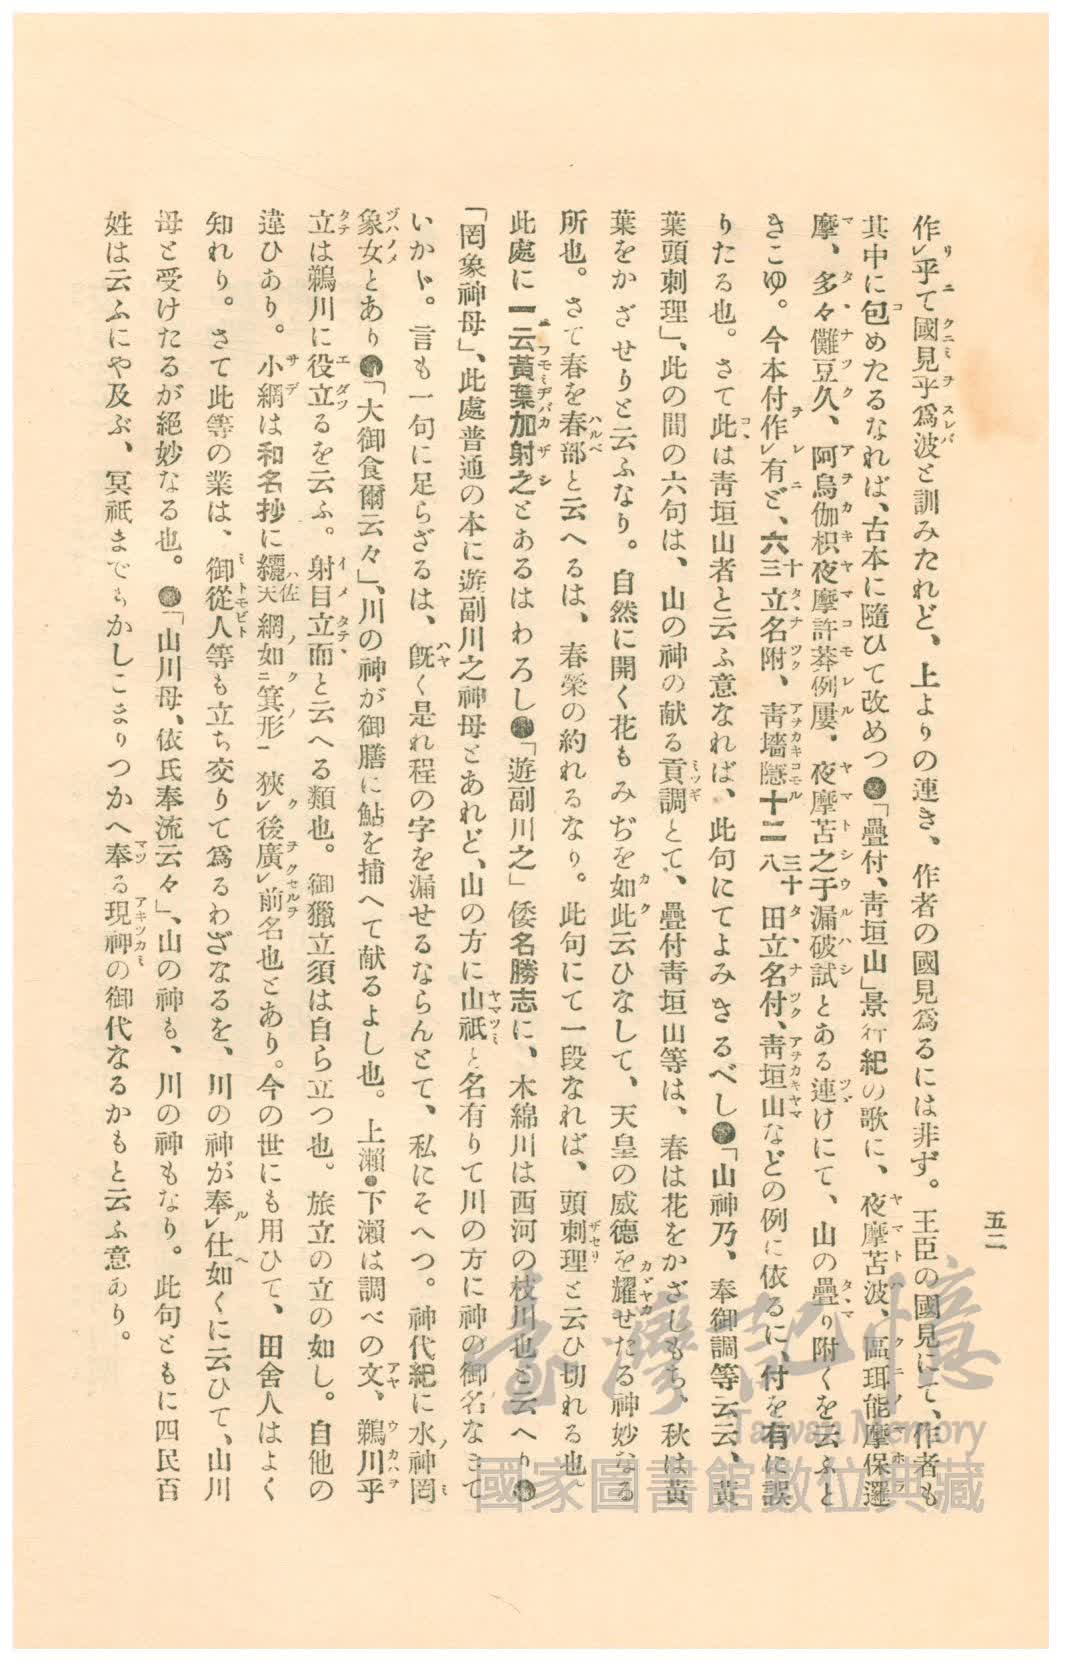 五二
作レ乎て國見乎爲波と訓みたれど、上よりの連き、作者の國見爲るには非ず。王臣の國見にて、作者も
其中に包めたるなれば、古本に隨ひて改めつ●「疊付、靑垣山」景行紀の歌に、夜摩苫波、區珥能摩保邏
摩、多々儺豆久、阿烏伽枳夜摩許莽例屢。夜摩苫之于漏破試とある連けにて、山の疊り附くを云ふと
きこゆ。今本付作レ有ど、六三十立名附、靑墻隱十二八三十田立名付、靑垣山などの例に依るに、付を有に誤
りたる也。さて此は靑垣山者と云ふ意なれば、此句にてよみきるべし●「山神乃、奉御調等云云、黃
葉頭刺理」、此の間の六句は、山の神の献る貢調とて、疊付靑垣山等は、春は花をかざしもち、秋は黃
葉をかざせりと云ふなり。自然に開く花もみぢを如此云ひなして、天皇の威德を耀せたる神妙なる
所也。さて春を春部と云へるは、春榮の約れるなり。此句にて一段なれば、頭刺理と云ひ切れる也
此處に一云黃葉加射之とあるはわろし●「遊副川之」倭名勝志に、木綿川は西河の枝川也と云へり●
「罔象神母」、此處普通の本に遊副川之神母とあれど、山の方に山祇と名有りて川の方に神の御名なきて
いかゞ。言も一句に足らざるは、旣く是れ程の字を漏せるならんとて、私にそへつ。神代紀に水神罔
象女とあり●「大御食爾云々」、川の神が御膳に鮎を捕へて献るよし也。上瀨●下瀨は調べの文、鵜川乎
立は鵜川に役立るを云ふ。射目立而と云へる類也。御獵立須は自ら立つ也。旅立の立の如し。自他の
違ひあり。小網は和名抄に纚佐天網如ニ箕形一狹レ後廣レ前名也とあり。今の世にも用ひて、田舍人はよく
知れり。さて此等の業は、御從人等も立ち交りて爲るわざなるを、川の神が奉レ仕如くに云ひて、山川
母と受けたるが絕妙なる也。●「山川母、依氐奉流云々」、山の神も、川の神もなり。此句ともに四民百
姓は云ふにや及ぶ、冥祇までもかしこまりつかへ奉る現神の御代なるかもと云ふ意あり。
臺灣記憶
Taiwan Memory
國家圖書館數位典藏